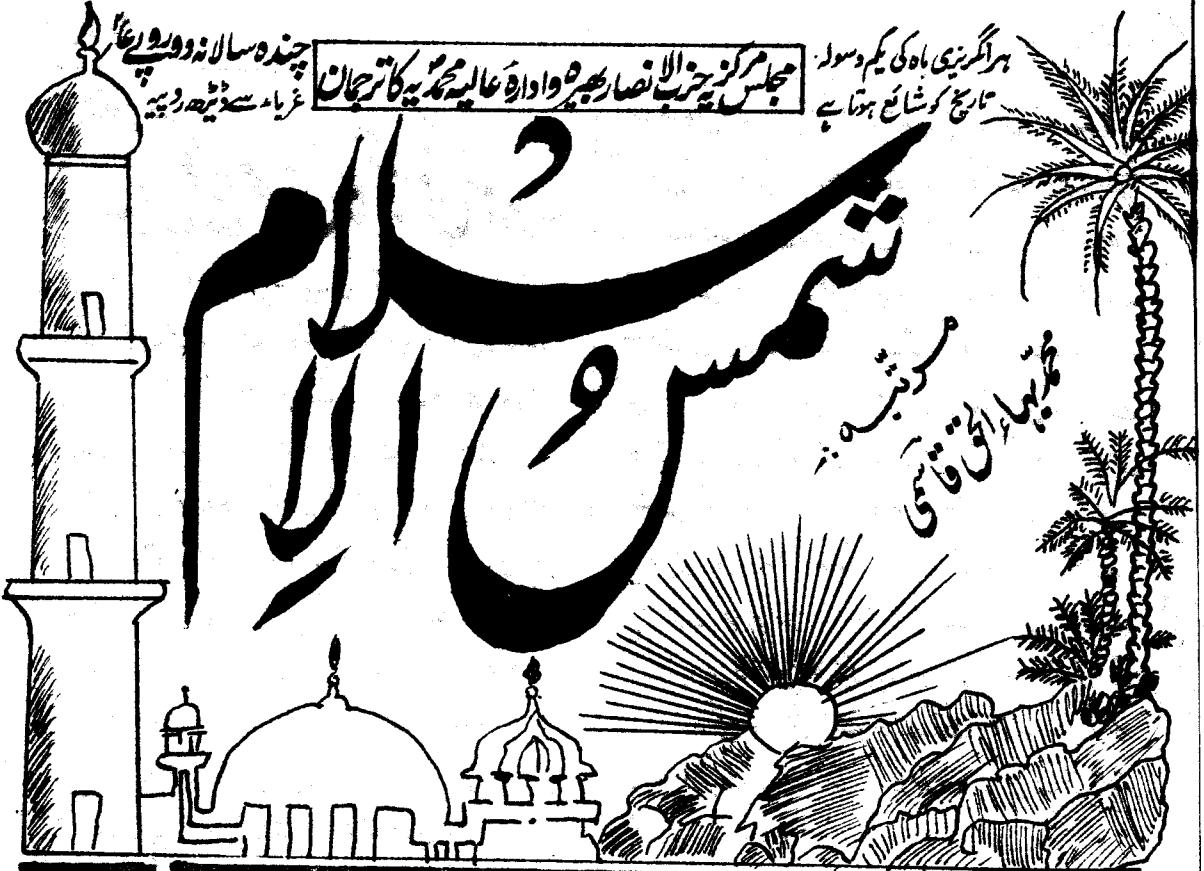 ہر انگریزی ماہ کی یکم و سولہ
تاریخ کو شائع ہوتا ہے
مجلس مرکزیہ حزب الانصار بھیرہ و ادارہ عالیہ محمدیہ کا ترجمان
چندہ سالانہ دو روپے
غرباء سے ڈیڑھ روپیہ
شمس الاسلام
مرتبہ
محمد بہاء الحق قاسمی